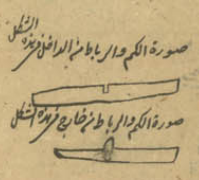 صورة الكم والرباط من الداخل فى هذه الشكل
صورة الكم والرباط من خارج فى هذه الشكل